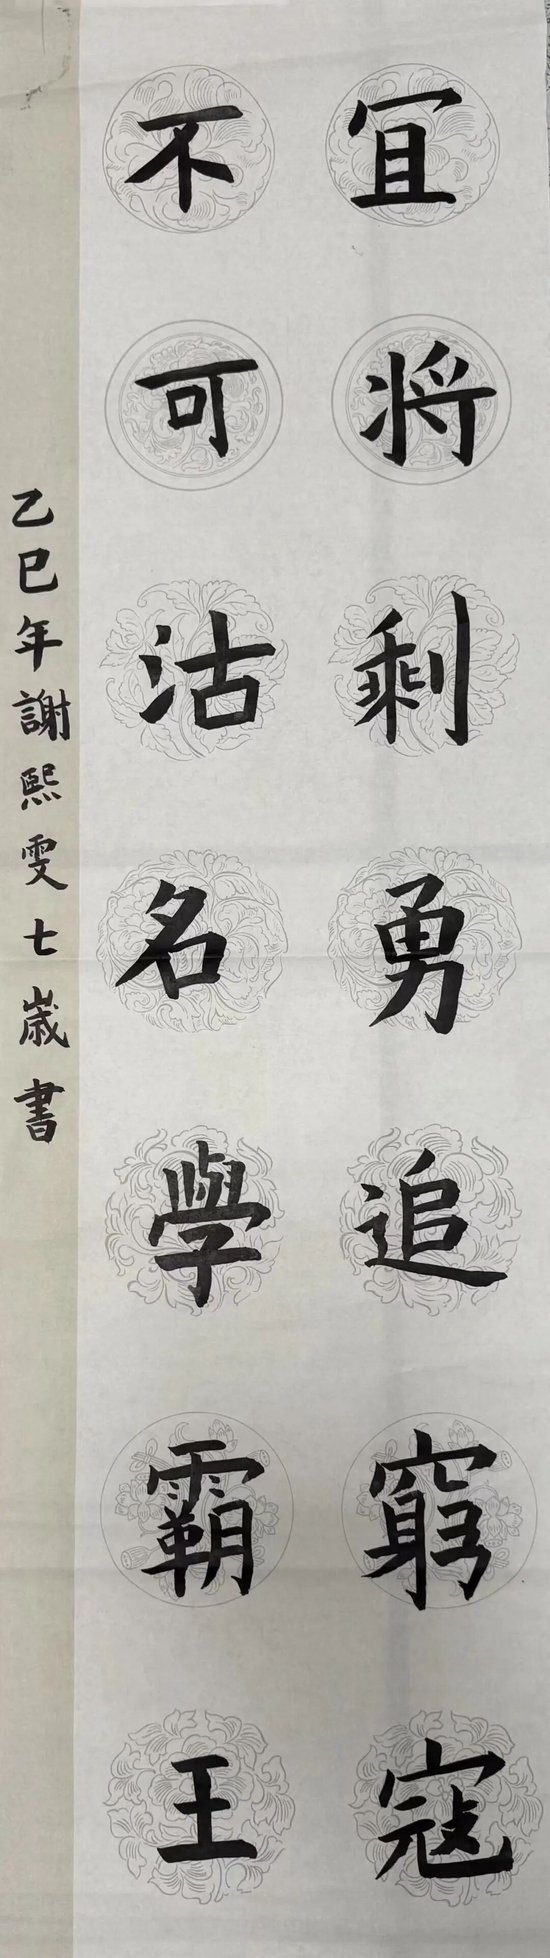 冝將剩勇追窮寇
不可沽名學霸王
乙巳年謝熙雯七歲書